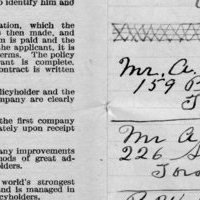 o identify him and
ation, which the
s then made, and
n is paid and the
he applicant, it is
erms. The policy
rant is complete.
ontract is written
licyholder and the
ompany are clearly
the first company
ately upon receipt
any improvements
hods of great ad-
olders.
world's strongest
and is managed in
cyholders.
Mr. A.
159
Mr A
226